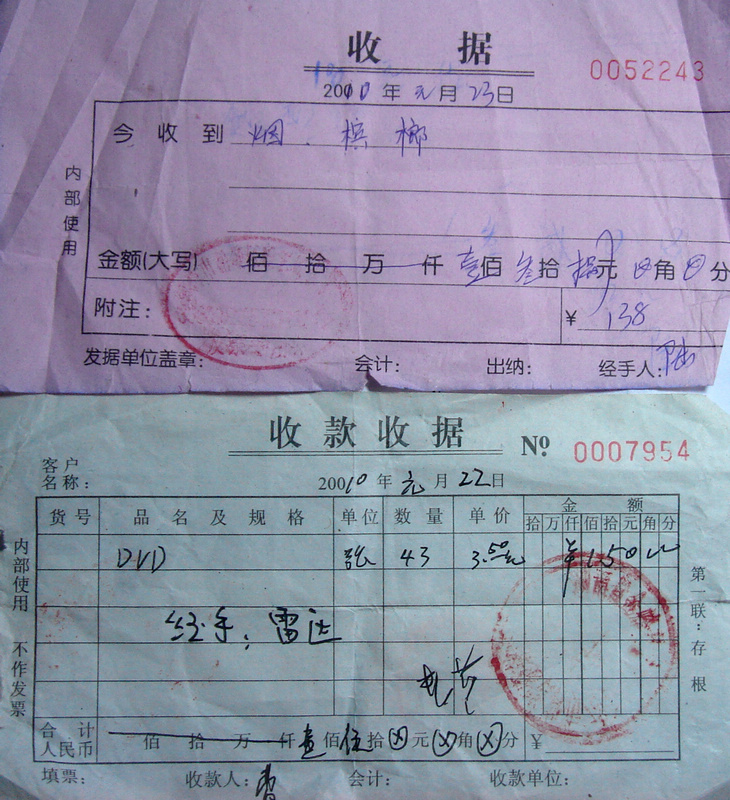 收 据
0052243
2010 年 元 月 23 日
今 收 到 烟 . 槟 榔
内部使用
金额(大写) 佰 拾 万 仟 壹佰 叁拾 捌元 0角 0分
附注: ¥ 138
发据单位盖章: 会计: 出纳: 经手人: 陆
收 款 收 据 No 0007954
客户名称:
20010 年 元 月 22 日
货 号 品 名 及 规 格 单位 数 量 单 价 金 额
拾 万 仟 佰 拾 元 角 分
DVD 张 43 3.50元 ¥ 1 5 0
内部使用 不作发票
第一联:存根
经手: 雷达
合 计
人民币 佰 拾 万 仟 壹佰 伍拾 ⊗元 ⊗角 ⊗分 ¥
填票: 收款人: 会计: 收款单位: